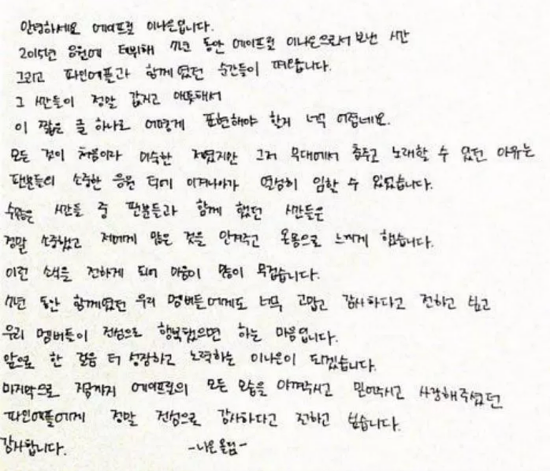 안녕하세요 에이프릴 이나은입니다.
2015년 응원에 데뷔해 6년 동안 에이프릴 이나은으로서 보낸 시간
그리고 파인에플과 함께 였던 순간들이 떠오릅니다.
그 시간들이 정말 값지고 애틋해서
이 짧은 글 하나로 어떻게 표현해야 할지 너무 어렵네요.
모든 것이 처음이라 미숙한 저였지만 그저 무대에서 춤추고 노래할 수 있던 이유는
팬분들의 소중한 응원 덕에 이겨나아가 열심히 임할 수 있었습니다.
수많은 시간들 중 팬분들과 함께 했던 시간들은
정말 소중했고 저에게 많은 것을 안겨주고 온몸으로 느끼게 했습니다.
이런 소식을 전하게 되어 마음이 많이 무겁습니다.
6년 동안 함께였던 우리 멤버들에게도 너무 고맙고 감사하다고 전하고 싶고
우리 멤버들이 진심으로 행복했으면 하는 마음입니다.
앞으로 한 걸음 더 성장하고 노력하는 이나은이 되겠습니다.
마지막으로 지금까지 에이프릴의 모든 모습을 아껴주시고 믿어주시고 사랑해주셨던
파인에플에게 정말 진심으로 감사하다고 전하고 싶습니다.
감사합니다. -나은 올림-